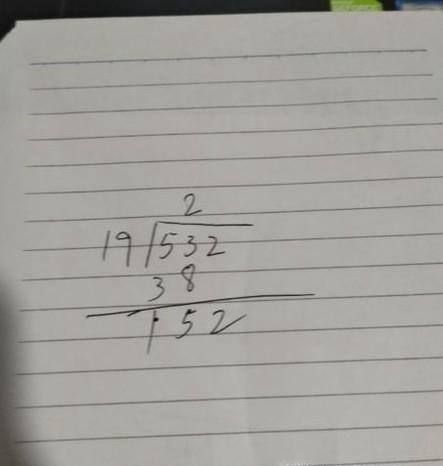 2
19)532
38
152